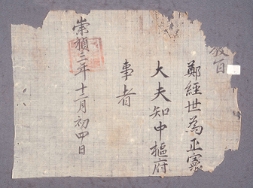 教旨
鄭經世為正憲
大夫知中樞府
事者
崇禎三年十二月初四日